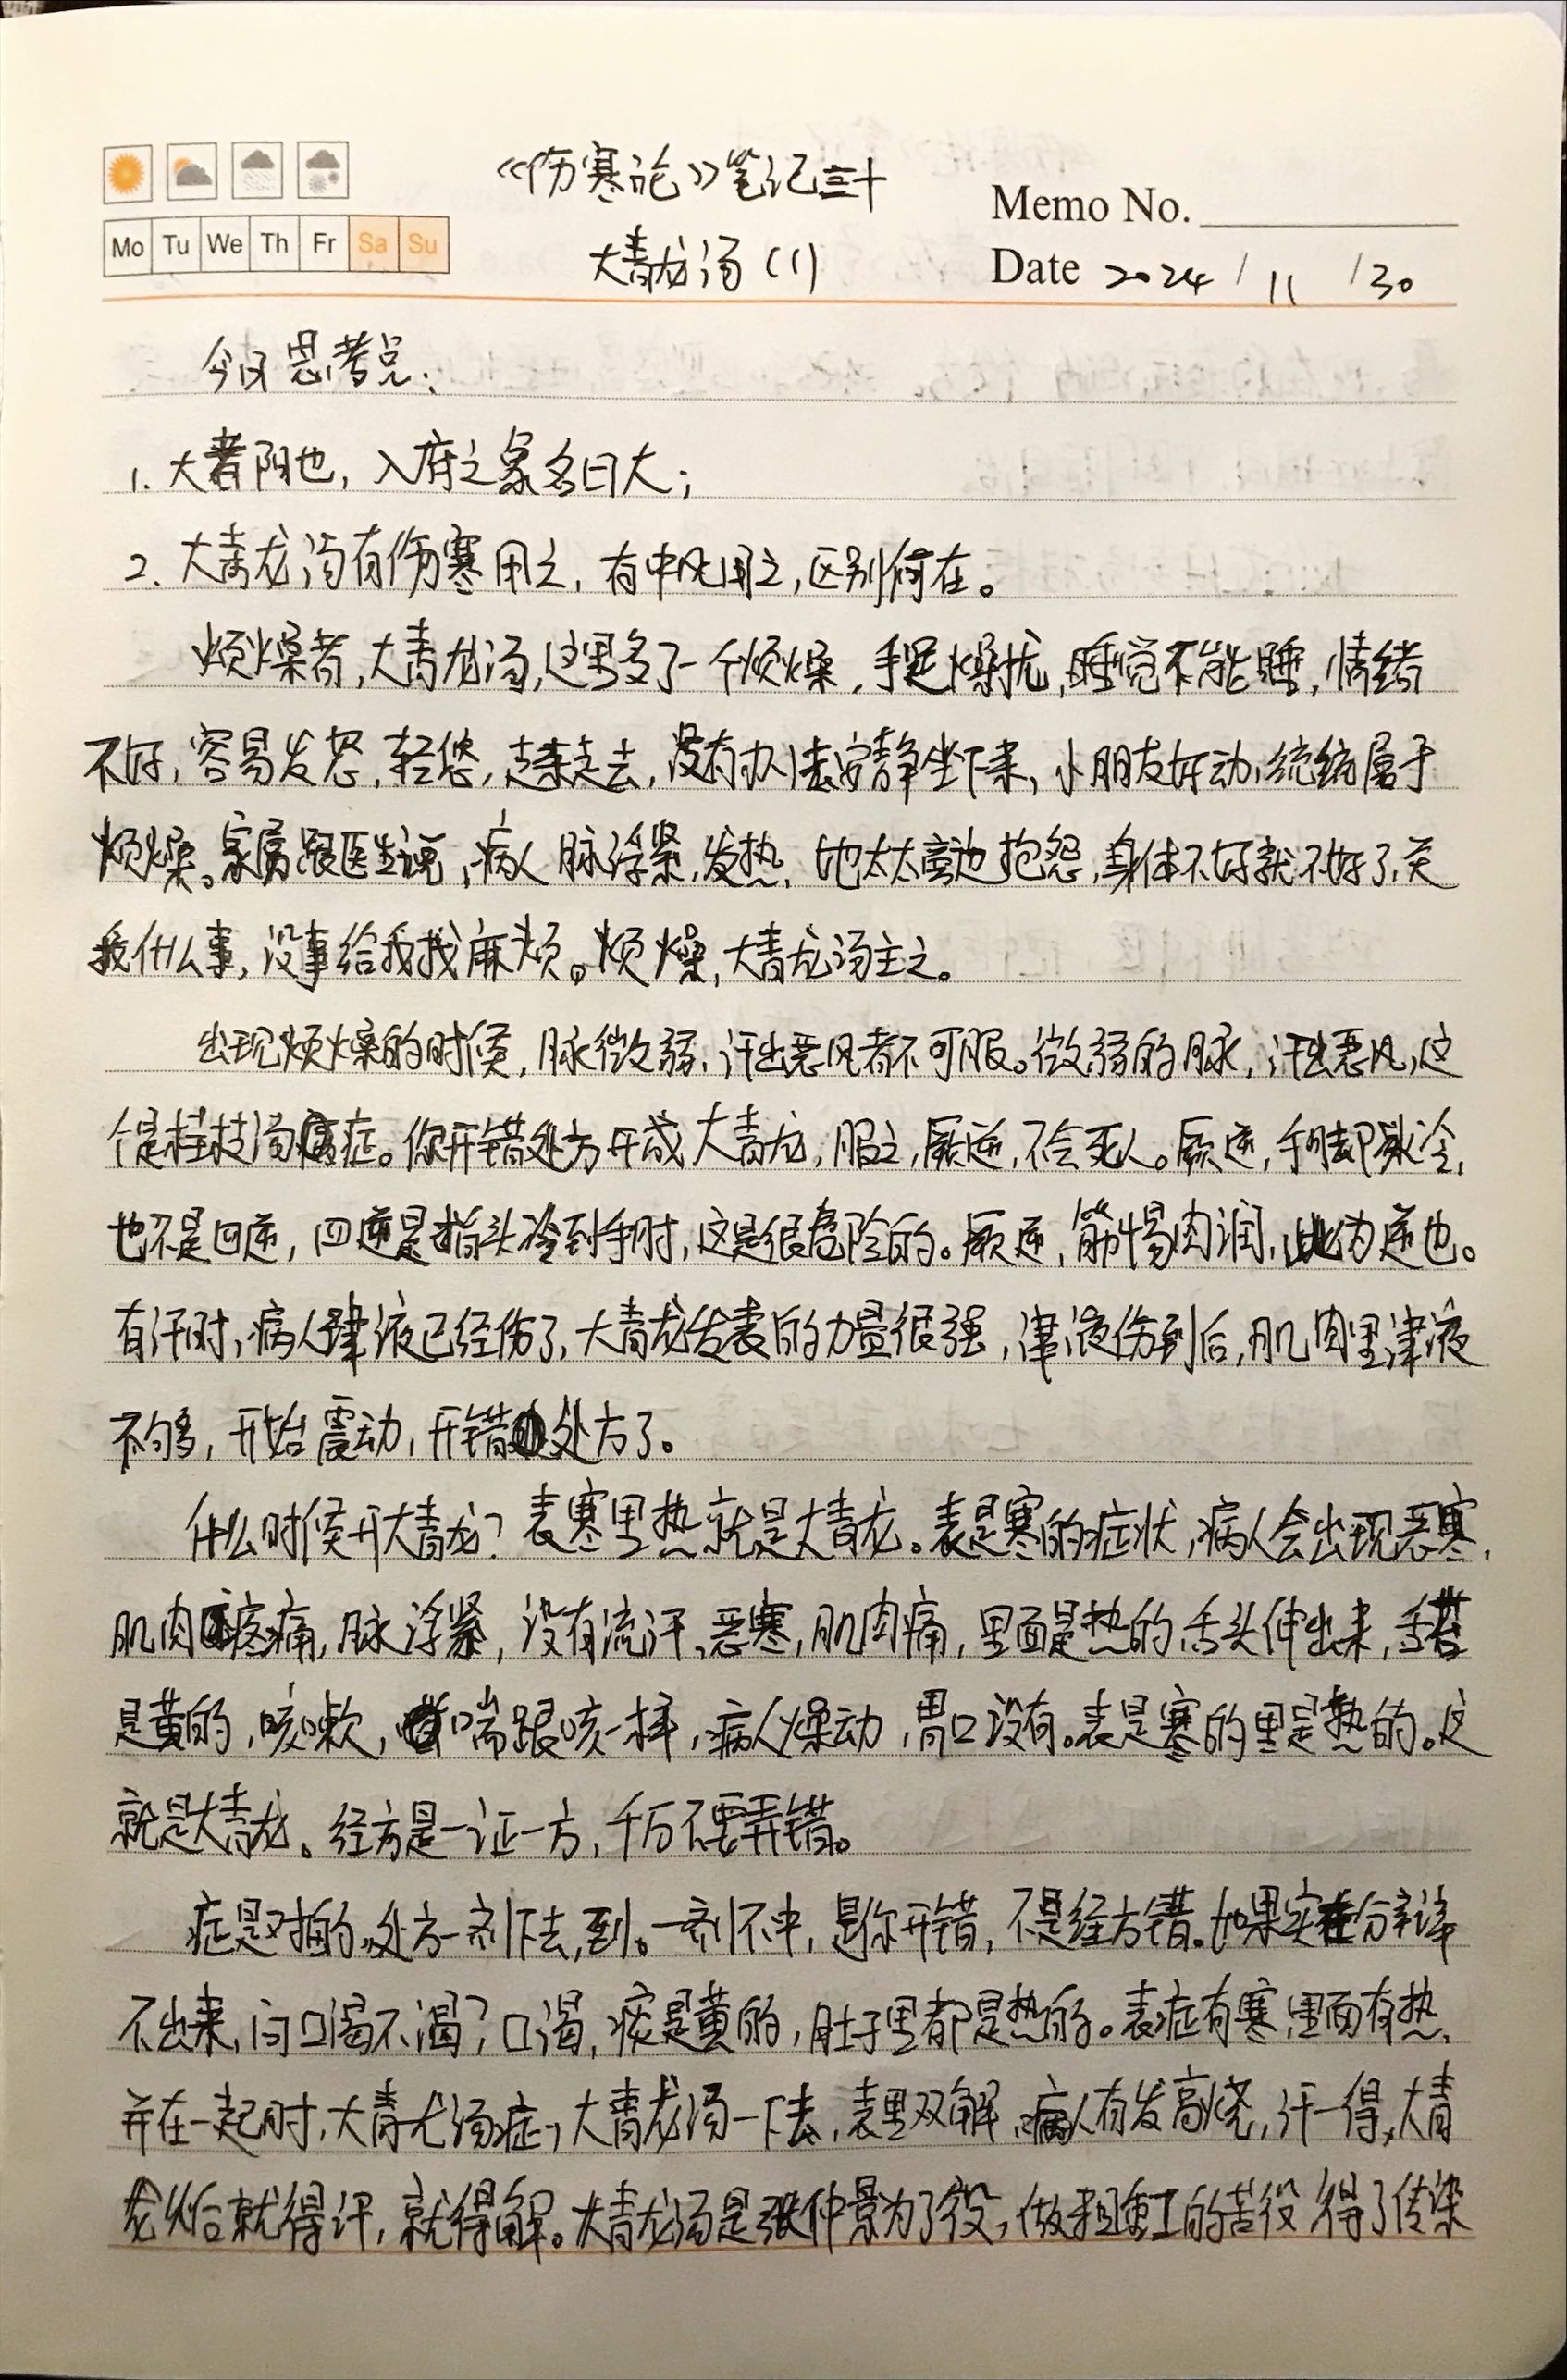 《伤寒论》笔记三十
Memo No.
Mo Tu We Th Fr Sa Su
大青龙汤(1)
Date 2024 / 11 / 30
今日思考点:
1. 大者阳也, 入府之象名曰大;
2. 大青龙汤有伤寒用之, 有中风用之, 区别何在。
烦燥者, 大青龙汤, 这里多了一个烦燥, 手足燥扰, 睡觉不能睡, 情绪
不好, 容易发怒, 轻恌, 走来走去, 没有办法安静坐下来, 小朋友好动, 统统属于
烦燥。家属跟医生说, 病人脉浮紧, 发热, 他太太旁边抱怨, 身体不好就不好了, 关
我什么事, 没事给我找麻烦。烦燥, 大青龙汤主之。
出现烦燥的时候, 脉微弱, 汗出恶风者不可服。微弱的脉, 汗出恶风, 这
个是桂枝汤症。你开错处方开成大青龙, 服之, 厥逆, 不会死人。厥逆, 手脚冰冷,
也不是四逆, 四逆是指头冷到手肘, 这是很危险的。厥逆, 筋惕肉润, 此为逆也。
有汗时, 病人津液已经伤了, 大青龙发表的力量很强, 津液伤到后, 肌肉里津液
不够, 开始震动, 开错处方了。
什么时侯开大青龙? 表寒里热就是大青龙。表是寒的症状, 病人会出现恶寒,
肌肉疼痛, 脉浮紧, 没有流汗, 恶寒, 肌肉痛, 里面是热的, 舌头伸出来, 舌苔
是黄的, 咳嗽, 喘跟咳一样, 病人燥动, 胃口没有。表是寒的里是热的。这
就是大青龙。经方是一证一方, 千万不要弄错。
症是对的, 处方一剂下去, 到。一剂不中, 是你开错, 不是经方错。如果实在分辩
不出来, 问口渴不渴? 口渴, 痰是黄的, 肚子里都是热的。表症有寒, 里面有热,
并在一起时, 大青龙汤症, 大青龙汤一下去, 表里双解, 病人有发高烧, 汗一得, 大青
龙以后就得汗, 就得解。大青龙汤是张仲景为了役, 做粗重工的苦役, 得了传染